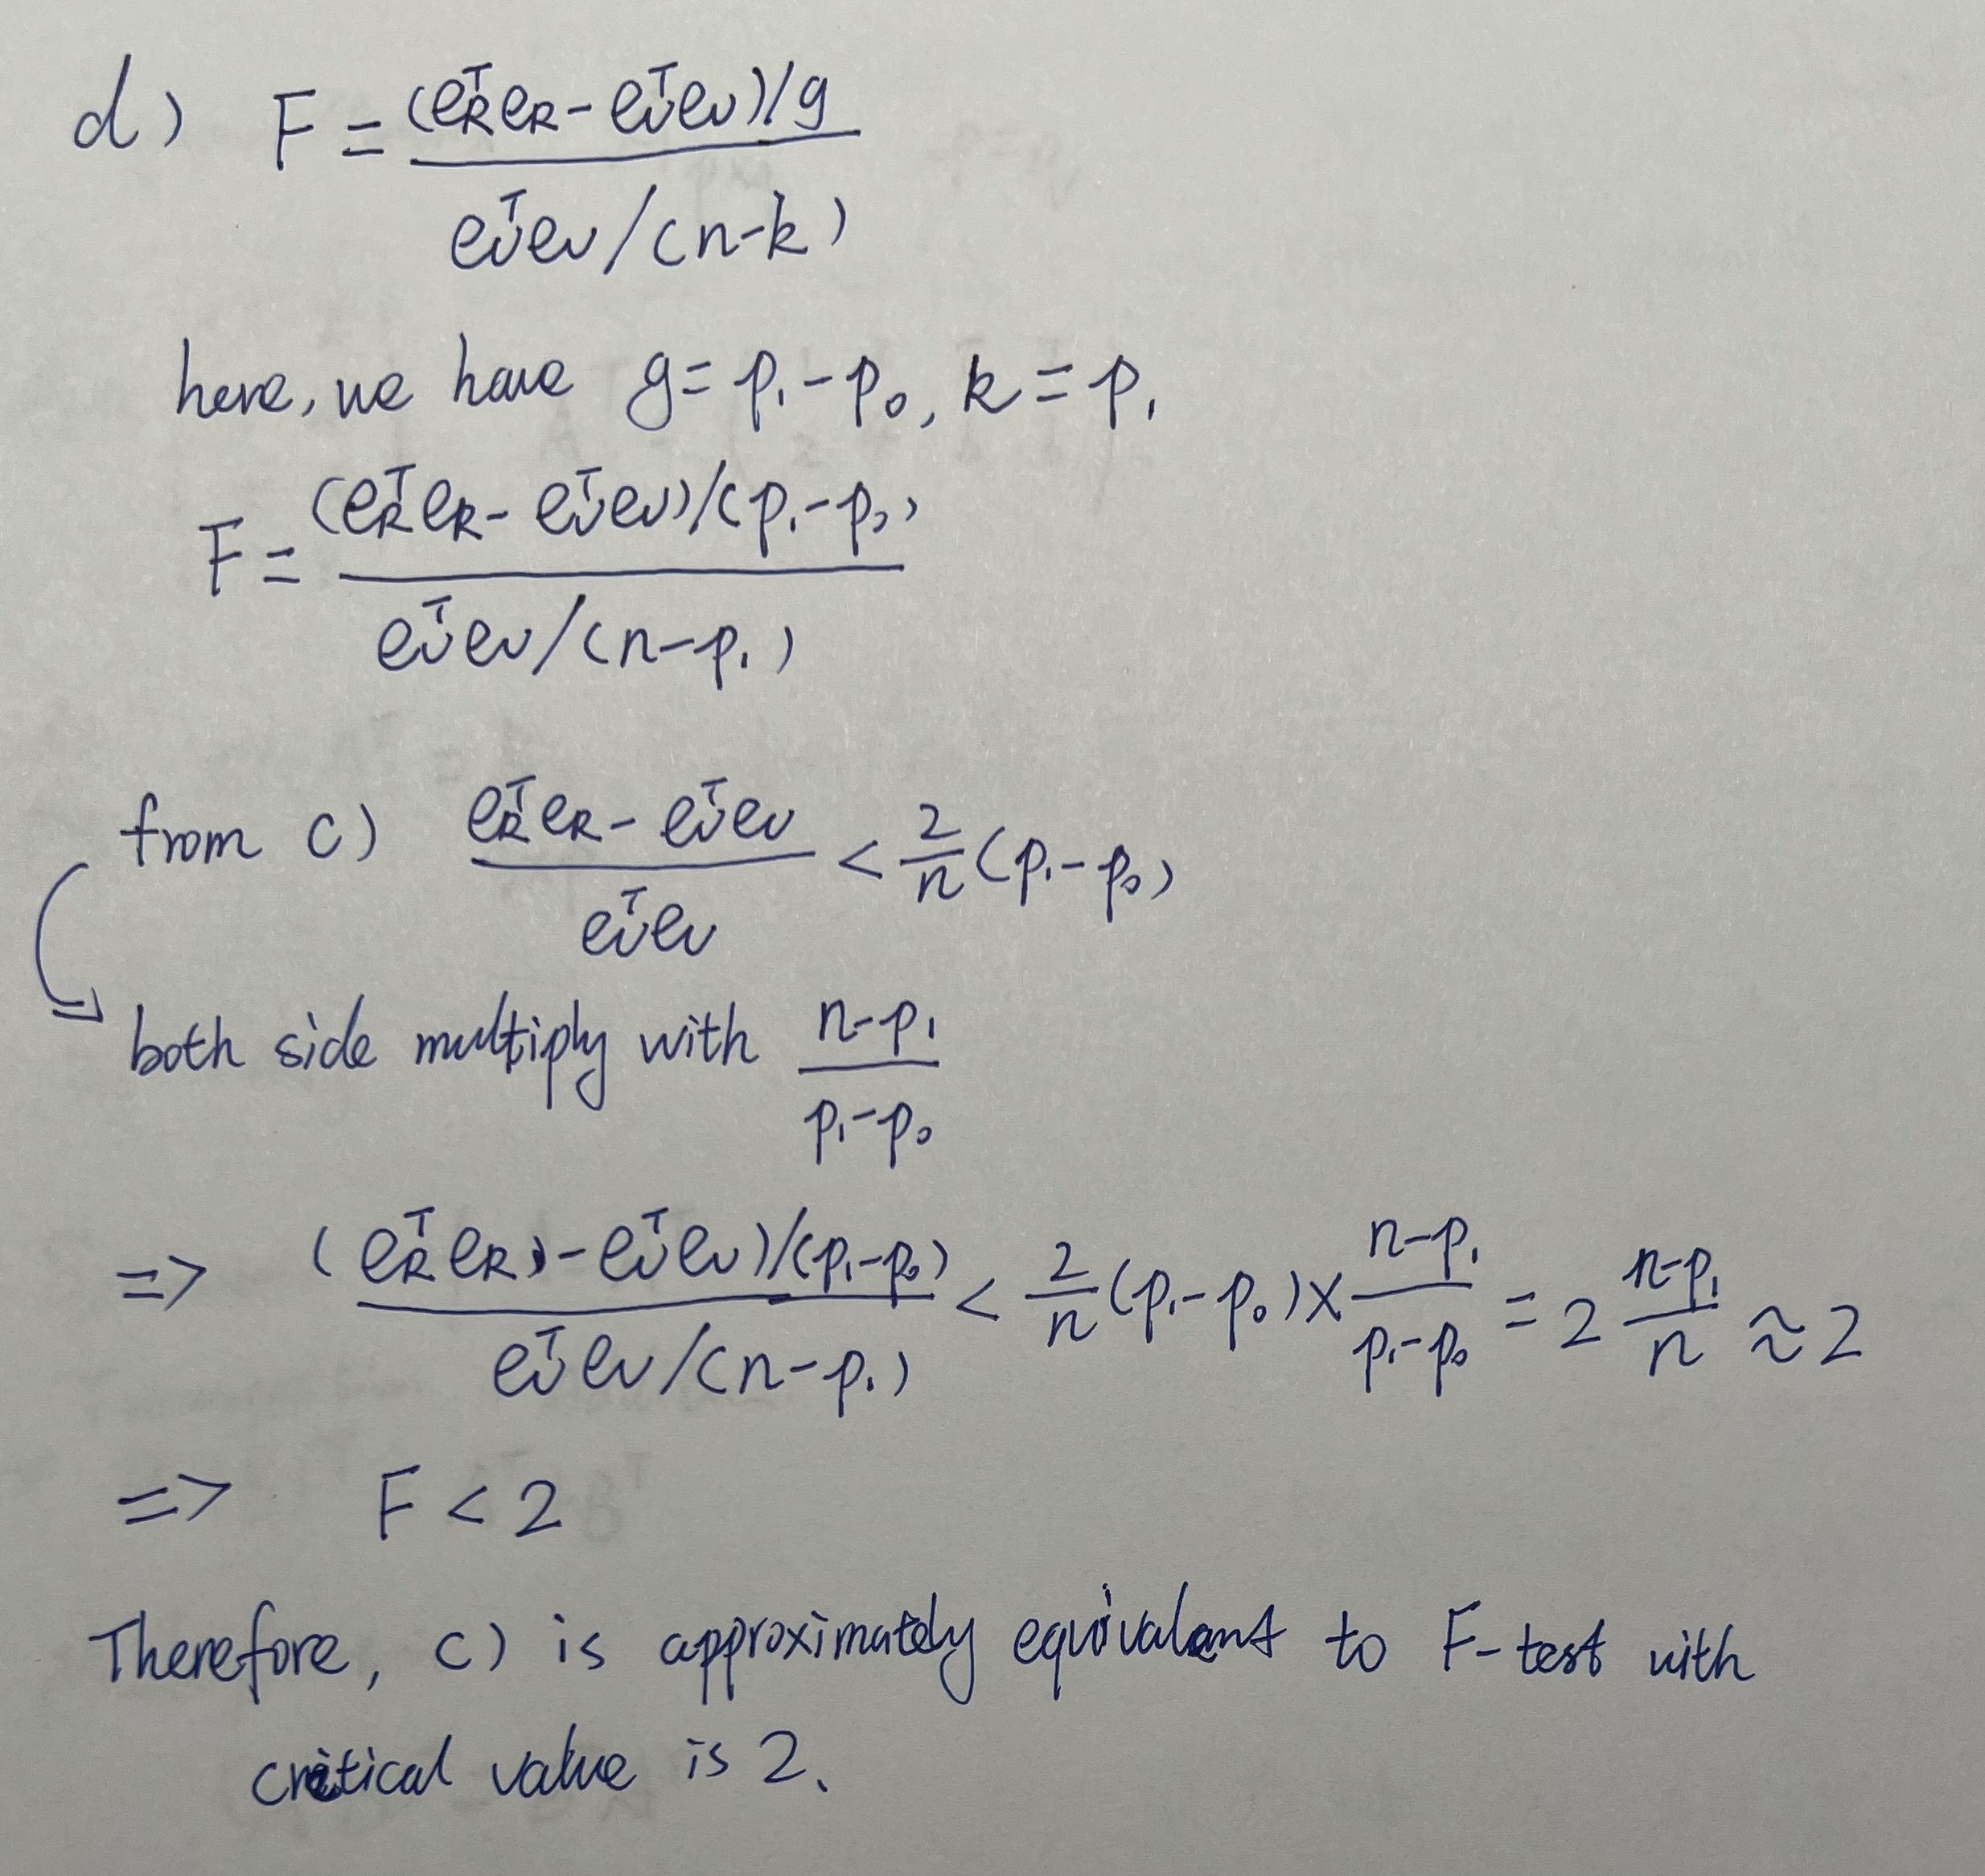 d) F = (e_R^T e_R - e_U^T e_U)/g
e_U^T e_U/(n-k)
here, we have g = p₁ - p₀, k = p₁
F = (e_R^T e_R - e_U^T e_U)/(p₁-p₀)
e_U^T e_U/(n-p₁)
from c) e_R^T e_R - e_U^T e_U / e_U^T e_U < 2/n (p₁-p₀)
both side multiply with n-p₁ / p₁-p₀
=> (e_R^T e_R) - e_U^T e_U)/(p₁-p₀) / e_U^T e_U/(n-p₁) < 2/n (p₁-p₀) × n-p₁ / p₁-p₀ = 2 n-p₁ / n ≈ 2
=> F < 2
Therefore, c) is approximately equivalent to F-test with
critical value is 2.